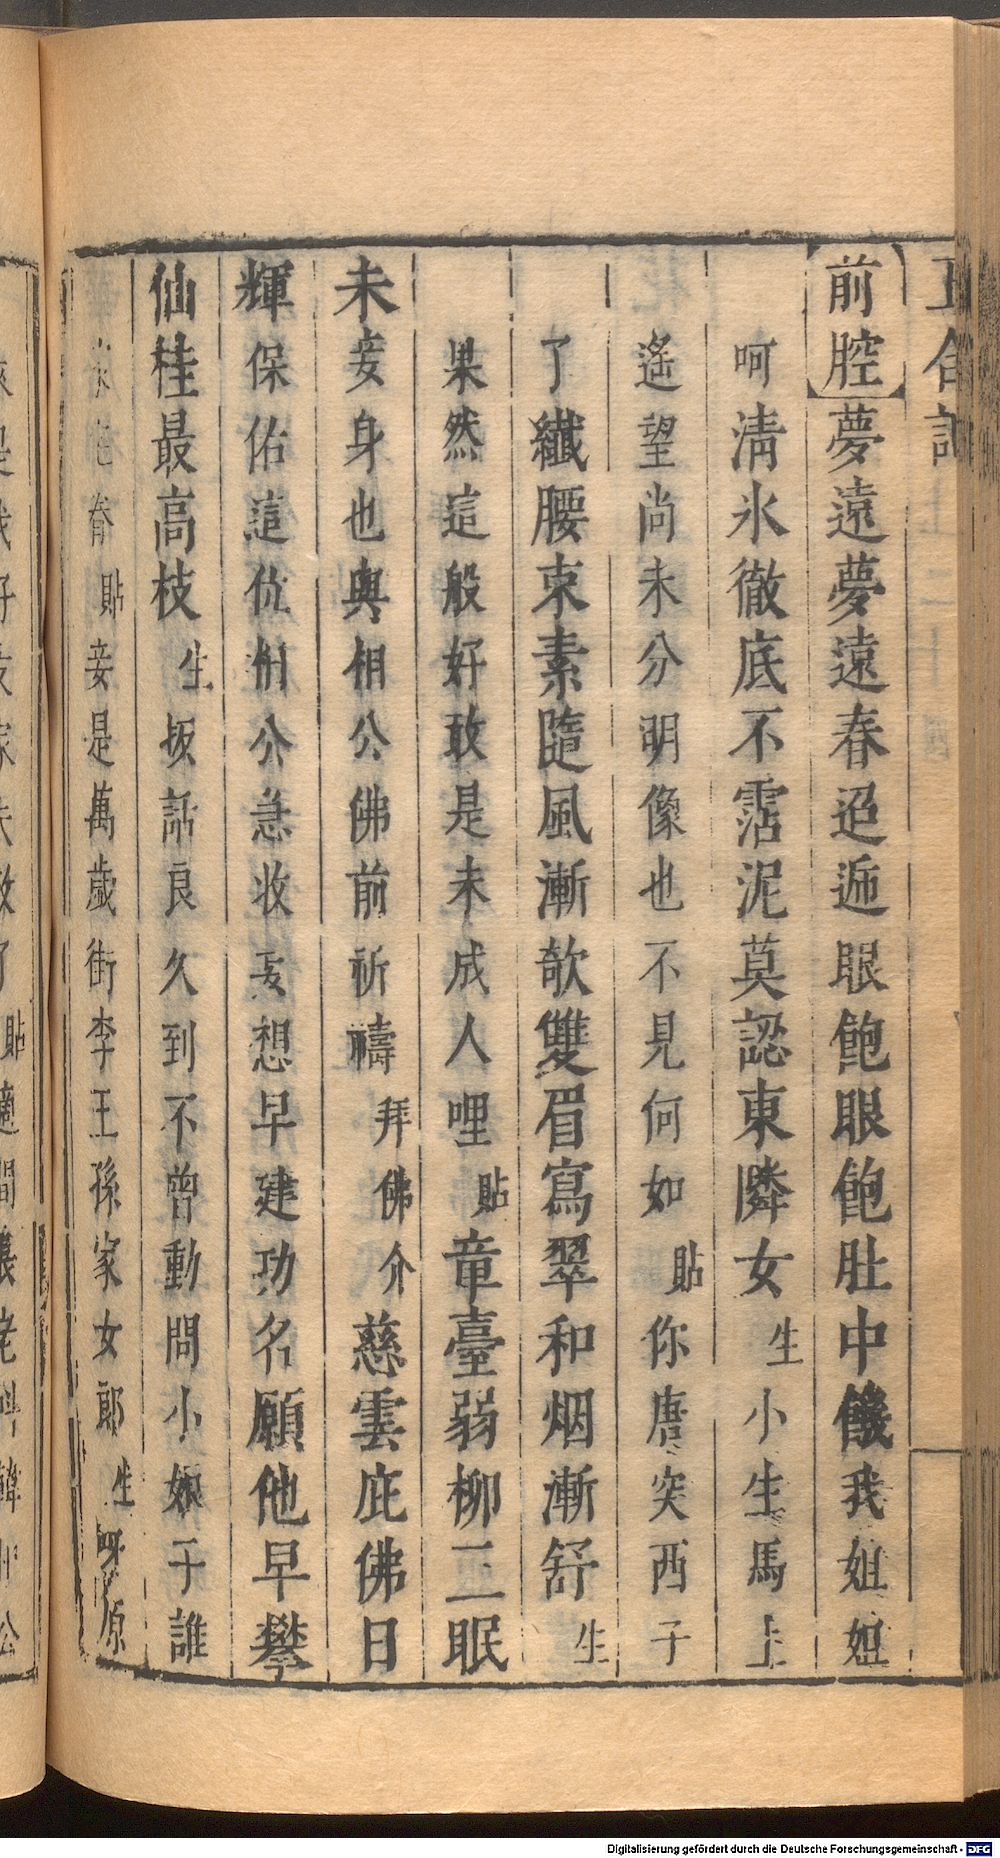 前腔夢遠夢遠春迢遞眼飽眼飽肚中饑我姐姐
呵清氷徹底不霑泥莫認東隣女生小生馬上
遙望尚未分明像也不見何如貼你唐突西子
了纖腰束素隨風漸欹雙眉寫翠和烟漸舒生
果然這般好敢是未成人哩貼章臺弱柳三眠
未妾身也與相公佛前祈禱拜佛介慈雲庇佛日
輝保佑這位相公急收妄想早建功名願他早攀
仙桂最高枝生扳話良久到不曾動問小娘子誰
氏宅眷貼妾是萬歲街李王孫家女郎生呀原
Digitalisierung gefördert durch die Deutsche Forschungsgemeinschaft - DFG